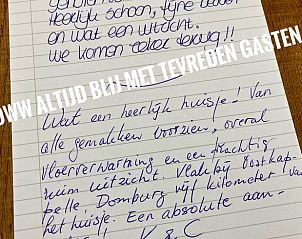 heerlijk schoon, fijne bedden
en wat een uitzicht.
We komen zeker terug!!
UWW ALTIJD BLIJ MET TEVREDEN GASTEN
Wat een heerlijk huisje! Van
alle gemakken voorzien, overal
vloerverwarming en een prachtig
ruim uitzicht. Vlakbij Oostkap-
pelle. Domburg vijf kilometer van
het huisje. Een absolute aan-